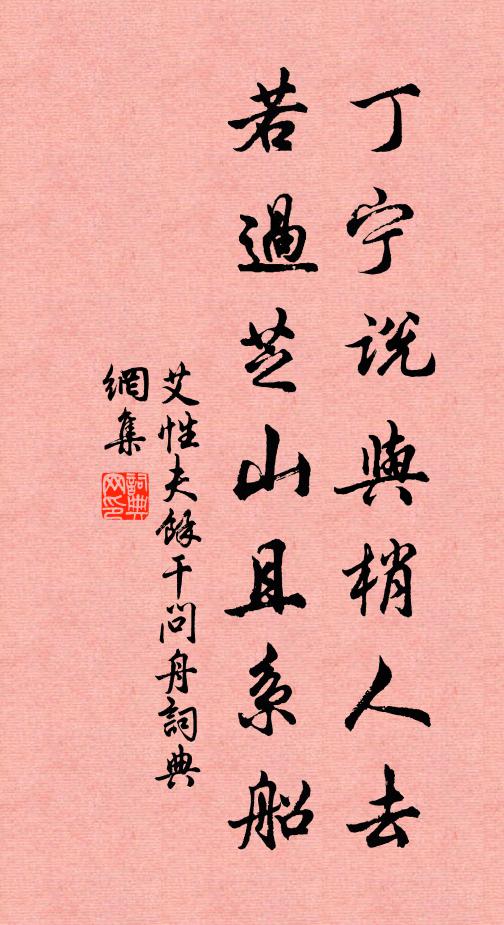 丁宁説與梢人去
若過芝山且系船
艾性夫餘干問舟詞典
網集
詞典
网印